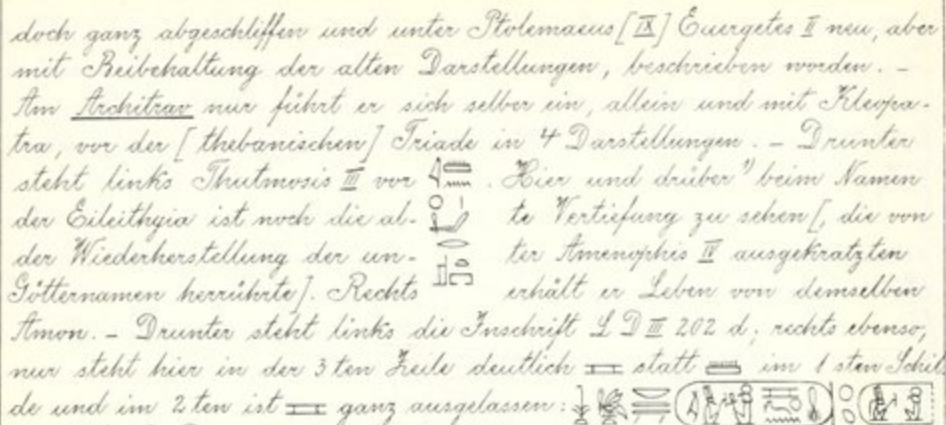 doch ganz abgeschliffen und unter Ptolemaeus [IX] Euergetes II neu, aber
mit Beibehaltung der alten Darstellungen, beschrieben worden. –
Am Architrav nur führt er sich selber ein, allein und mit Kleopa-
tra, vor der [thebanischen] Triade in 4 Darstellungen. – Drunter
steht links Thutmosis III vor . Hier und drüber¹⁾ beim Namen
der Eileithyia ist noch die al- te Vertiefung zu sehen [, die von
der Wiederherstellung der un- ter Amenophis IV ausgekratzten
Götternamen herrührte]. Rechts erhält er Leben von demselben
Amon. – Drunter steht links die Inschrift L D III 202 d; rechts ebenso,
nur steht hier in der 3ten Zeile deutlich statt im 1sten Schil-
de und im 2ten ist ganz ausgelassen: